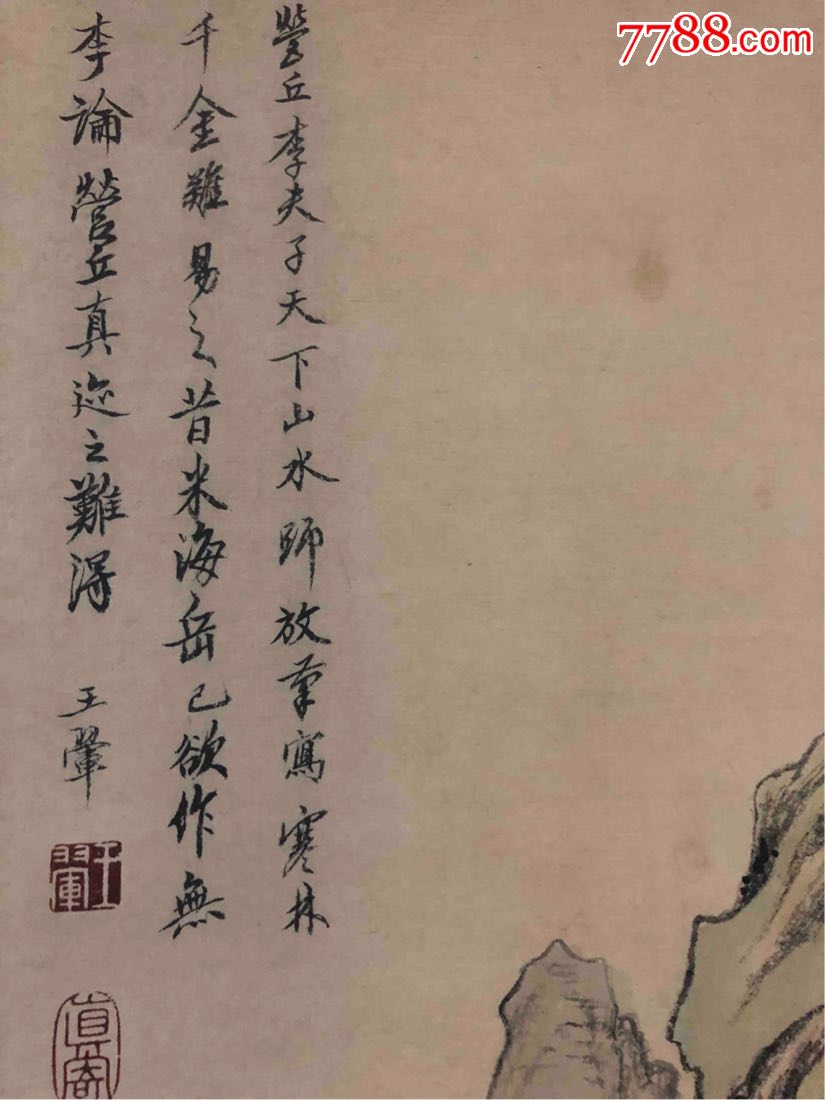 7788.com
營丘李夫子天下山水師放筆寫寒林
千金難易之昔米海岳已欲作無
李論營丘真迹之難得
王翬
王翬